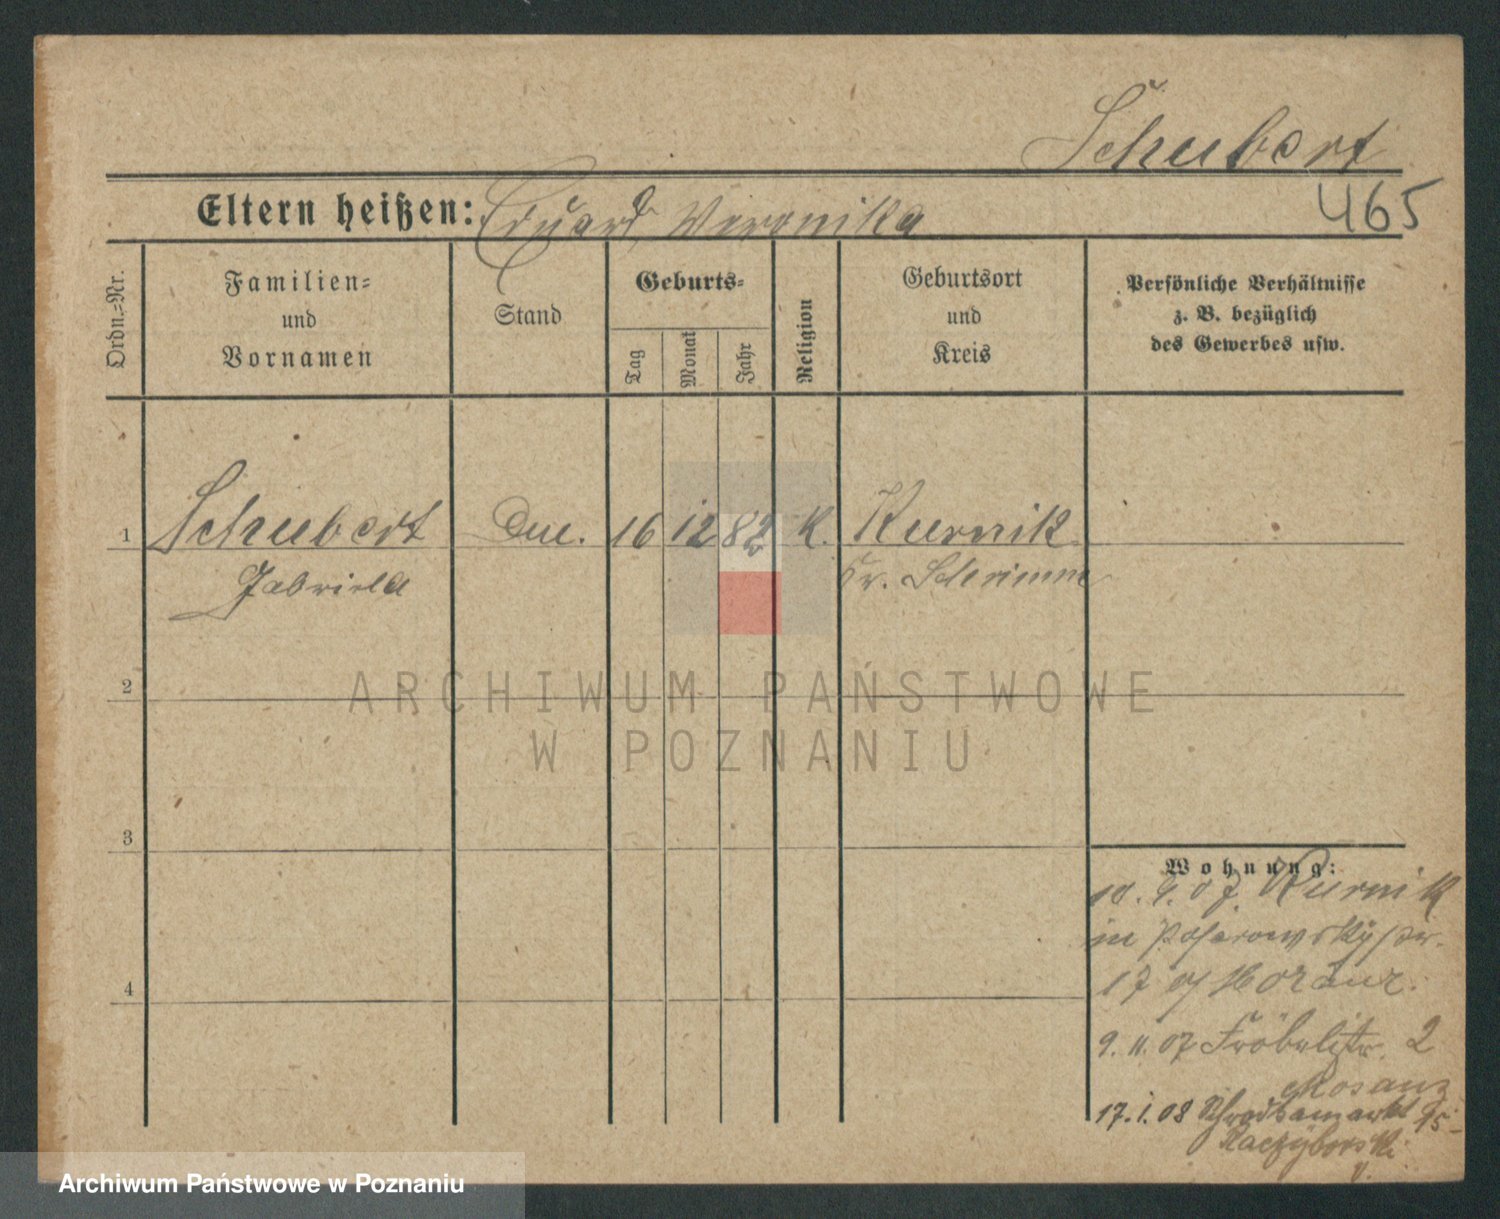 Schubert
465
Eltern heißen: Eduard, Weronika
Ordn.-Nr.
Familien-
und
Vornamen
Stand
Geburts-
Tag
Monat
Jahr
Religion
Geburtsort
und
Kreis
Persönliche Verhältnisse
z. B. bezüglich
des Gewerbes usw.
1 Schubert 16 12 82 K. Kurnik
Gabriela Kr. Schrimm
ARCHIWUM PAŃSTWOWE
2
W POZNANIU
3
Wohnung:
10. 9. 07. Kurnik
in
17
9. 11. 07 Fröbelstr. 2
17. 1. 08
4
Archiwum Państwowe w Poznaniu